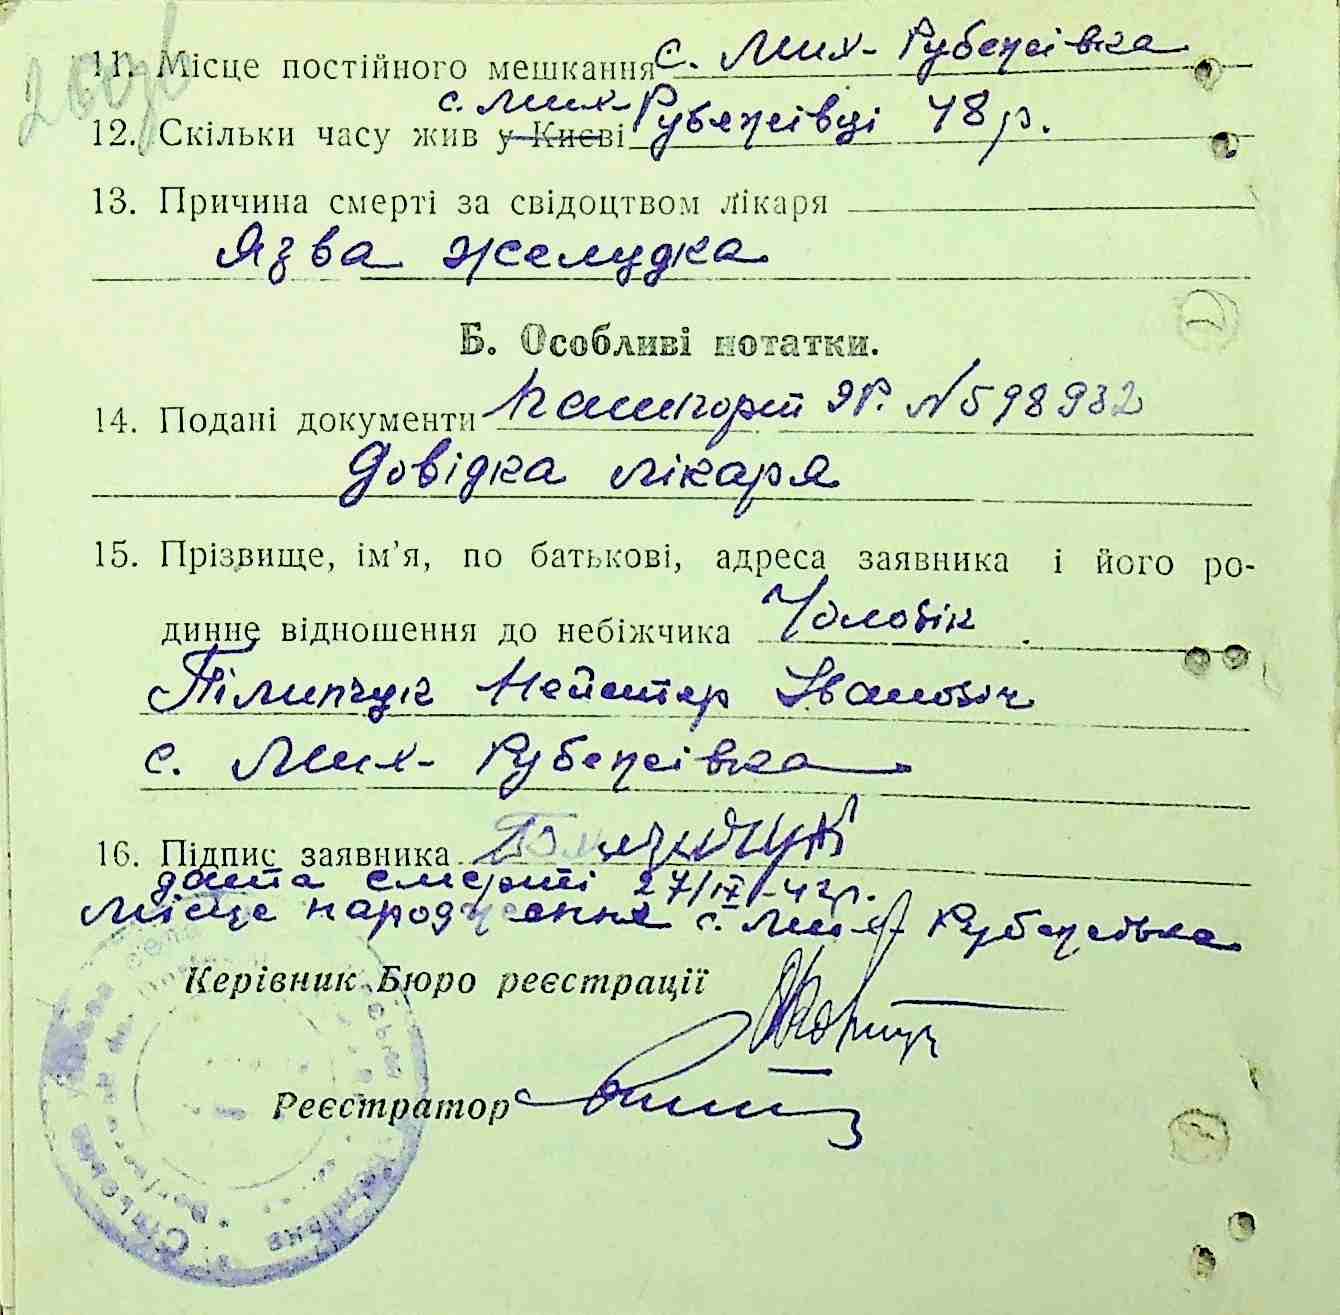 11. Місце постійного мешкання с. Мих- Рубежівка
с. Мих-Рубежівці 48 р.
12. Скільки часу жив у Києві
13. Причина смерті за свідоцтвом лікаря
Язва желудка
Б. Особливі нотатки.
14. Подані документи Пашпорт ЯР. №598932
Довідка лікаря
15. Прізвище, ім’я, по батькові, адреса заявника і його ро-
динне відношення до небіжчика Чоловік
Пілипчук Нейстер Іванович
с. Мих- Рубежівка
16. Підпис заявника
дата смерті 27/IX-42р.
Місце народження с. Мих- Рубежівка
Керівник Бюро реєстрації
Реєстратор